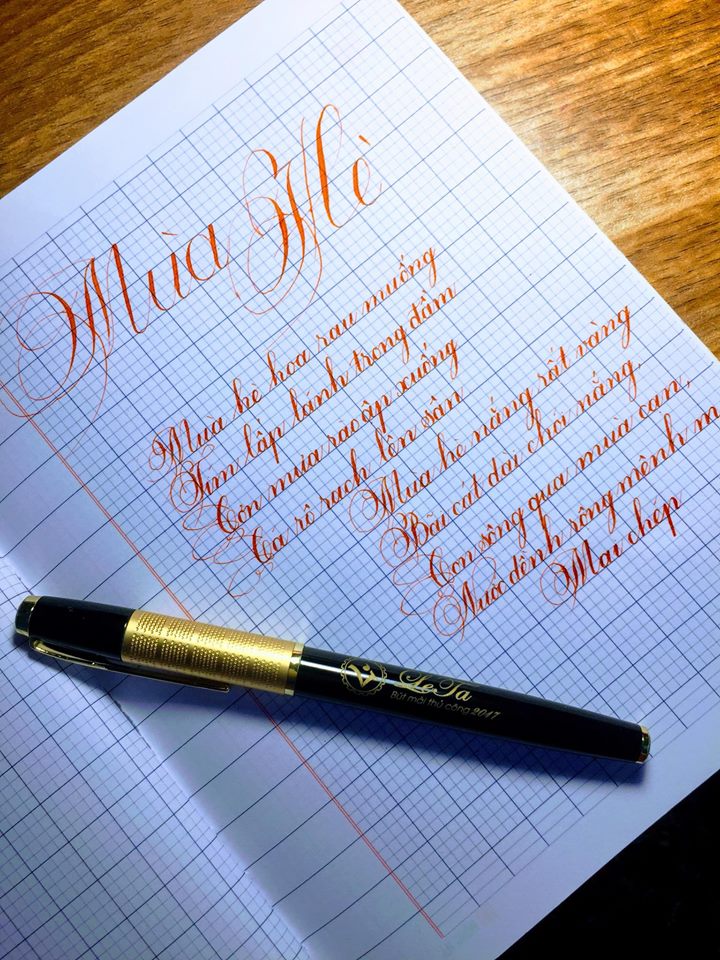 Mùa Hè
Mùa hè hoa rau muống
Tím lấp lánh trong đầm
Cơn mưa rào ập xuống
Cá rô rạch lên sân
Mùa hè nắng rất vàng
Bãi cát dài chói nắng.
Con sông qua mùa cạn,
Nước dềnh rộng mênh m
Mai chép
LeTa
Bút mài thủ công 2017